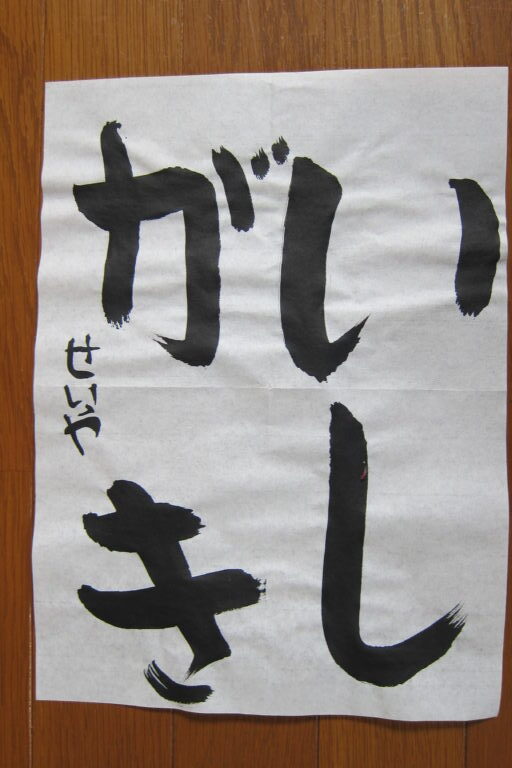 いし
がき
せいや